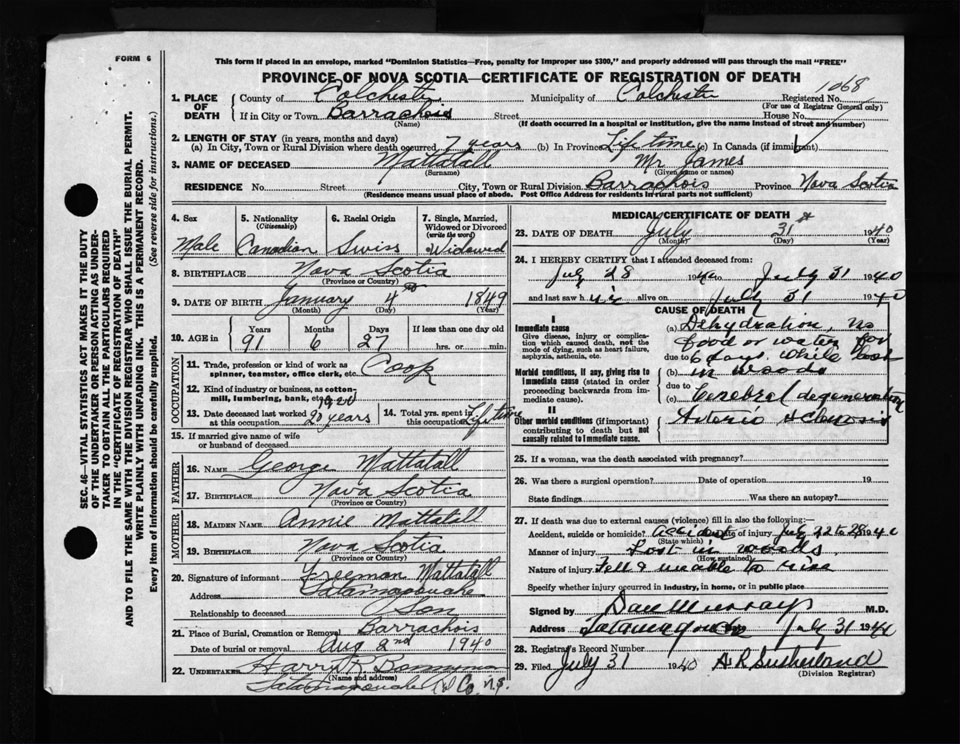 FORM 6
This form if placed in an envelope, marked "Dominion Statistics—Free, penalty for improper use $300," and properly addressed will pass through the mail "FREE"
PROVINCE OF NOVA SCOTIA—CERTIFICATE OF REGISTRATION OF DEATH
1068
1. PLACE OF DEATH
County of Colchester Municipality of Colchester Registered No.
(For use of Registrar General only)
If in City or Town Barrachois Street House No.
(Name) (If death occurred in a hospital or institution, give the name instead of street and number)
2. LENGTH OF STAY (in years, months and days)
(a) In City, Town or Rural Division where death occurred 7 years (b) In Province Life time (c) In Canada (if immigrant)
3. NAME OF DECEASED Mattatall Mr James
(Surname) (Given name or names)
RESIDENCE No. Street City, Town or Rural Division Barrachois Province Nova Scotia
(Residence means usual place of abode. Post Office Address for residents in rural parts not sufficient)
4. Sex
Male
5. Nationality
(Citizenship)
Canadian
6. Racial Origin
Swiss
7. Single, Married, Widowed or Divorced
(write the word)
Widowed
8. BIRTHPLACE Nova Scotia
(Province or Country)
9. DATE OF BIRTH January 4 1849
(Month) (Day) (Year)
10. AGE in
Years Months Days If less than one day old
91 6 27 hrs. or min.
OCCUPATION
11. Trade, profession or kind of work as spinner, teamster, office clerk, etc. Coop
12. Kind of industry or business, as cotton-mill, lumbering, bank, etc.
13. Date deceased last worked at this occupation 1920 20 years
14. Total yrs. spent in this occupation Life time
15. If married give name of wife or husband of deceased
FATHER
16. NAME George Mattatall
17. BIRTHPLACE Nova Scotia
(Province or Country)
MOTHER
18. MAIDEN NAME Annie Mattatall
19. BIRTHPLACE Nova Scotia
(Province or Country)
20. Signature of informant Freeman Mattatall
Address Tatamagouche
Relationship to deceased Son
21. Place of Burial, Cremation or Removal Barrachois
Date of burial or removal Aug 2nd 1940
22. UNDERTAKER Harry
(Name and address)
Tatamagouche Col Co. N.S.
MEDICAL CERTIFICATE OF DEATH
23. DATE OF DEATH July 31 1940
(Month) (Day) (Year)
24. I HEREBY CERTIFY that I attended deceased from:
July 28 1940 to July 31 1940
and last saw him alive on July 31 1940
CAUSE OF DEATH
I
Immediate cause
Give disease, injury or complication which caused death, not the mode of dying, such as heart failure, asphyxia, asthenia, etc.
Morbid conditions, if any, giving rise to immediate cause (stated in order proceeding backwards from immediate cause).
II
Other morbid conditions (if important) contributing to death but not causally related to immediate cause.
(a) Dehydration, no
food or water for
due to 6 days while lost
(b) in woods
due to
(c) Cerebral degeneration
Arterio Sclerosis
25. If a woman, was the death associated with pregnancy?
26. Was there a surgical operation? Date of operation 19
State findings Was there an autopsy?
27. If death was due to external causes (violence) fill in also the following:—
Accident, suicide or homicide? Accident Date of injury July 22 to 28 1940
(State which)
Manner of injury Lost in woods
(How sustained)
Nature of injury Fell & unable to rise
Specify whether injury occurred in industry, in home, or in public place
Signed by Dan Murray M.D.
Address Tatamagouche July 31 1940
28. Registrar's Record Number
29. Filed July 31 1940 A R Sutherland
(Division Registrar)
SEC. 46—VITAL STATISTICS ACT MAKES IT THE DUTY
OF THE UNDERTAKER OR PERSON ACTING AS UNDER-
TAKER TO OBTAIN ALL THE PARTICULARS REQUIRED
IN THE "CERTIFICATE OF REGISTRATION OF DEATH"
AND TO FILE THE SAME WITH THE DIVISION REGISTRAR WHO SHALL ISSUE THE BURIAL PERMIT.
WRITE PLAINLY WITH UNFADING INK. THIS IS A PERMANENT RECORD.
Every item of Information should be carefully supplied. (See reverse side for instructions.)